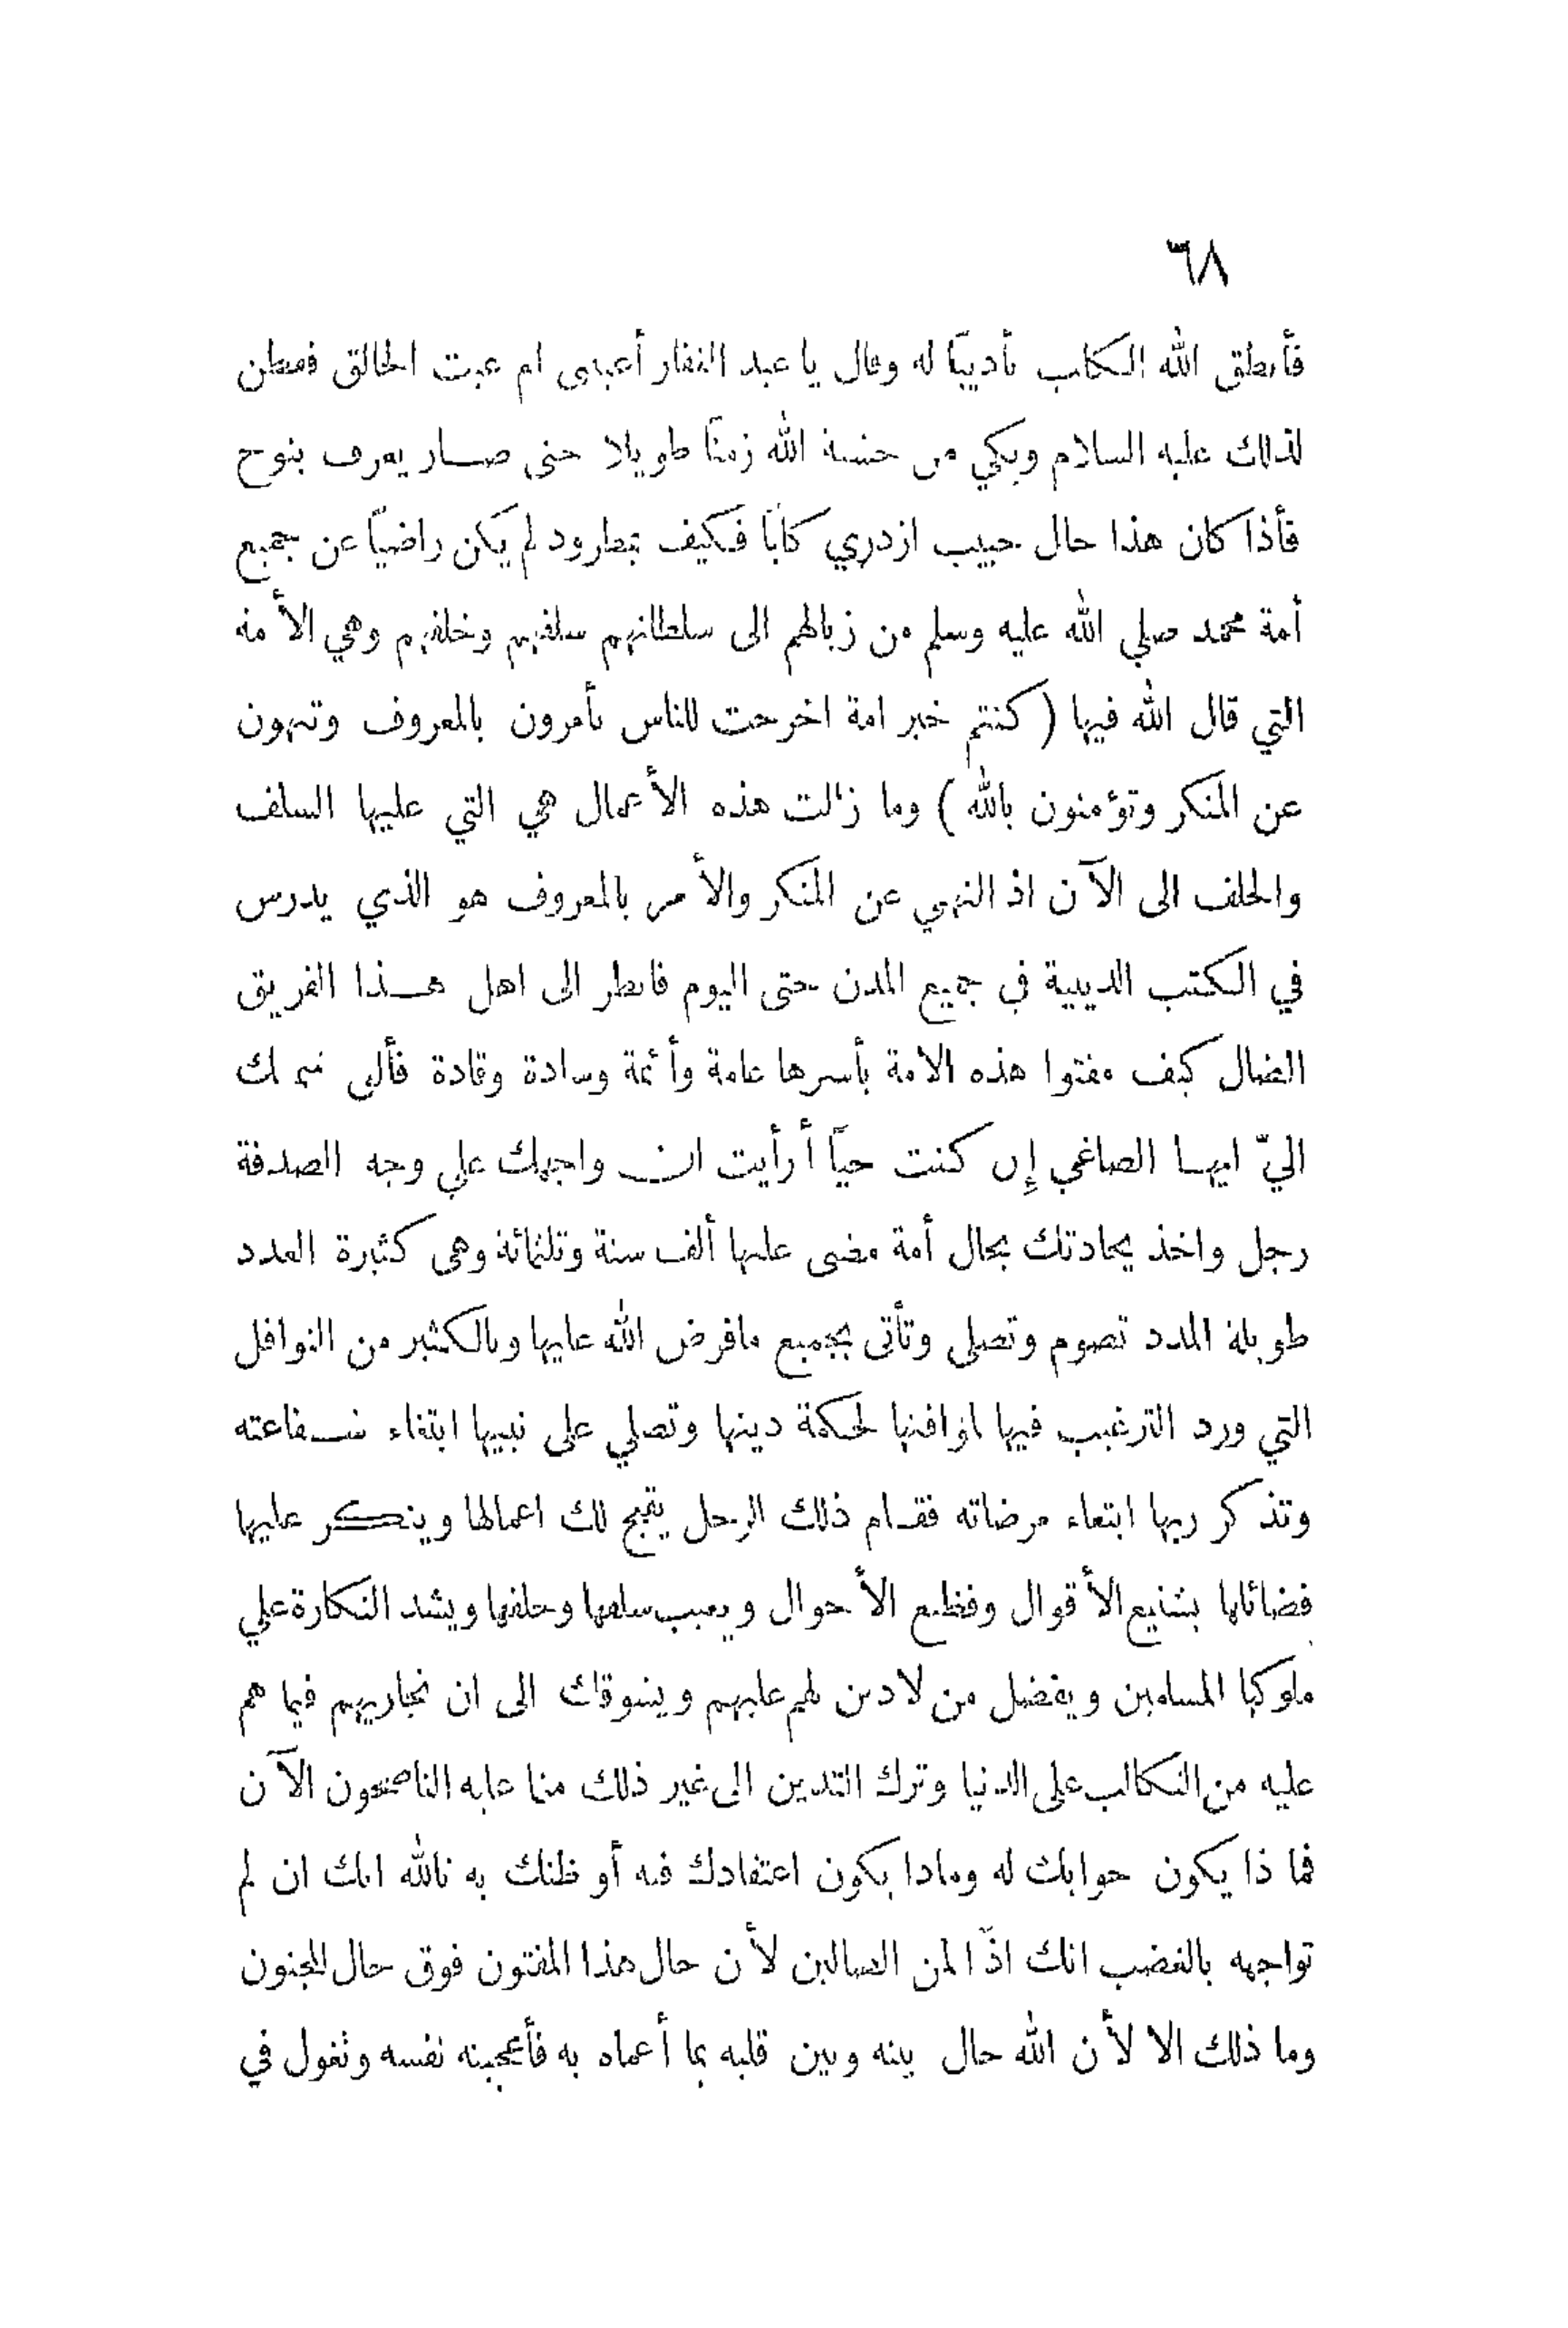 ٦٨
فأنطق الله الكلب تأديبًا له وقال يا عبد الغفار أعبتنى ام عبت الخالق ففطن
لذلك عليه السلام وبكي من خشية الله زمنًا طويلا حتى صار يعرف بنوح
فأذا كان هذا حال حبيب ازدري كلبًا فكيف بمطرود لم يكن راضيًا عن جميع
أمة محمد صلي الله عليه وسلم من زبالهم الى سلطانهم سلفهم وخلفهم وهي الأمة
التي قال الله فيها ( كنتم خير امة اخرجت للناس تأمرون بالمعروف وتنهون
عن المنكر وتؤمنون بالله ) وما زالت هذه الأعمال هي التي عليها السلف
والخلف الى الآن اذ النهي عن المنكر والأمر بالمعروف هو الذي يدرس
في الكتب الدينية في جميع المدن حتى اليوم فانظر الى اهل هذا الفريق
الضال كيف مقتوا هذه الامة بأسرها عامة وأئمة وسادة وقادة فألق سمعك
اليّ ايها الصاغي إن كنت حيًا أرأيت ان واجهك علي وجه الصدفة
رجل واخذ يحادثك بحال أمة مضى عليها ألف سنة وثلثمائة وهى كثيرة العدد
طويلة المدد تصوم وتصلى وتأتى بجميع مافرض الله عليها وبالكثير من النوافل
التي ورد الترغيب فيها لموافقتها لحكمة دينها وتصلي على نبيها ابتغاء شفاعته
وتذكر ربها ابتغاء مرضاته فقام ذلك الرجل يقبح لك اعمالها وينكر عليها
فضائلها بشنيع الأقوال وفظيع الأحوال ويعيب سلفها وخلفها ويشد النكارة علي
ملوكها المسلمين ويفضل من لادين لهم عليهم ويشوقك الى ان نجاريهم فيما هم
عليه من التكالب على الدنيا وترك التدين الى غير ذلك مما عليه الناصحون الآن
فما ذا يكون جوابك له وماذا يكون اعتقادك فيه أو ظنك به تالله انك ان لم
تواجهه بالغضب انك اذًا لمن الضالين لأن حال هذا المفتون فوق حال المجنون
وما ذلك الا لأن الله حال بينه وبين قلبه بما أعماه به فأعجبته نفسه ونقول في